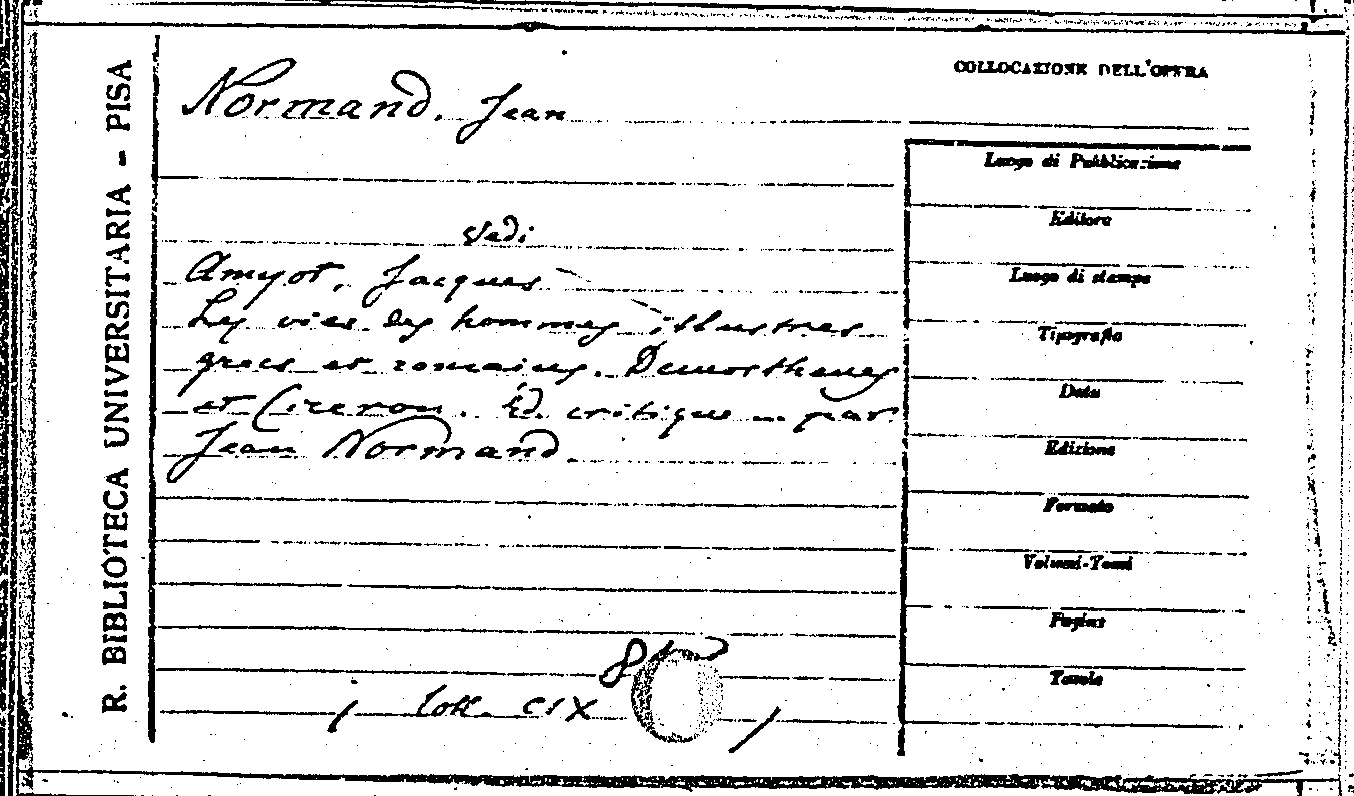 R. BIBLIOTECA UNIVERSITARIA - PISA
COLLOCAZIONE DELL'OPERA
Normand, Jean
vedi
Amyot, Jacques
Les vies des hommes illustres
grecs et romains. Demosthenes
et Ciceron. Éd. critique ... par
Jean Normand.
Coll. CIX
Luogo di Pubblicazione
Editore
Luogo di stampa
Tipografia
Data
Edizione
Formato
Volumi-Tomi
Pagine
Tavole